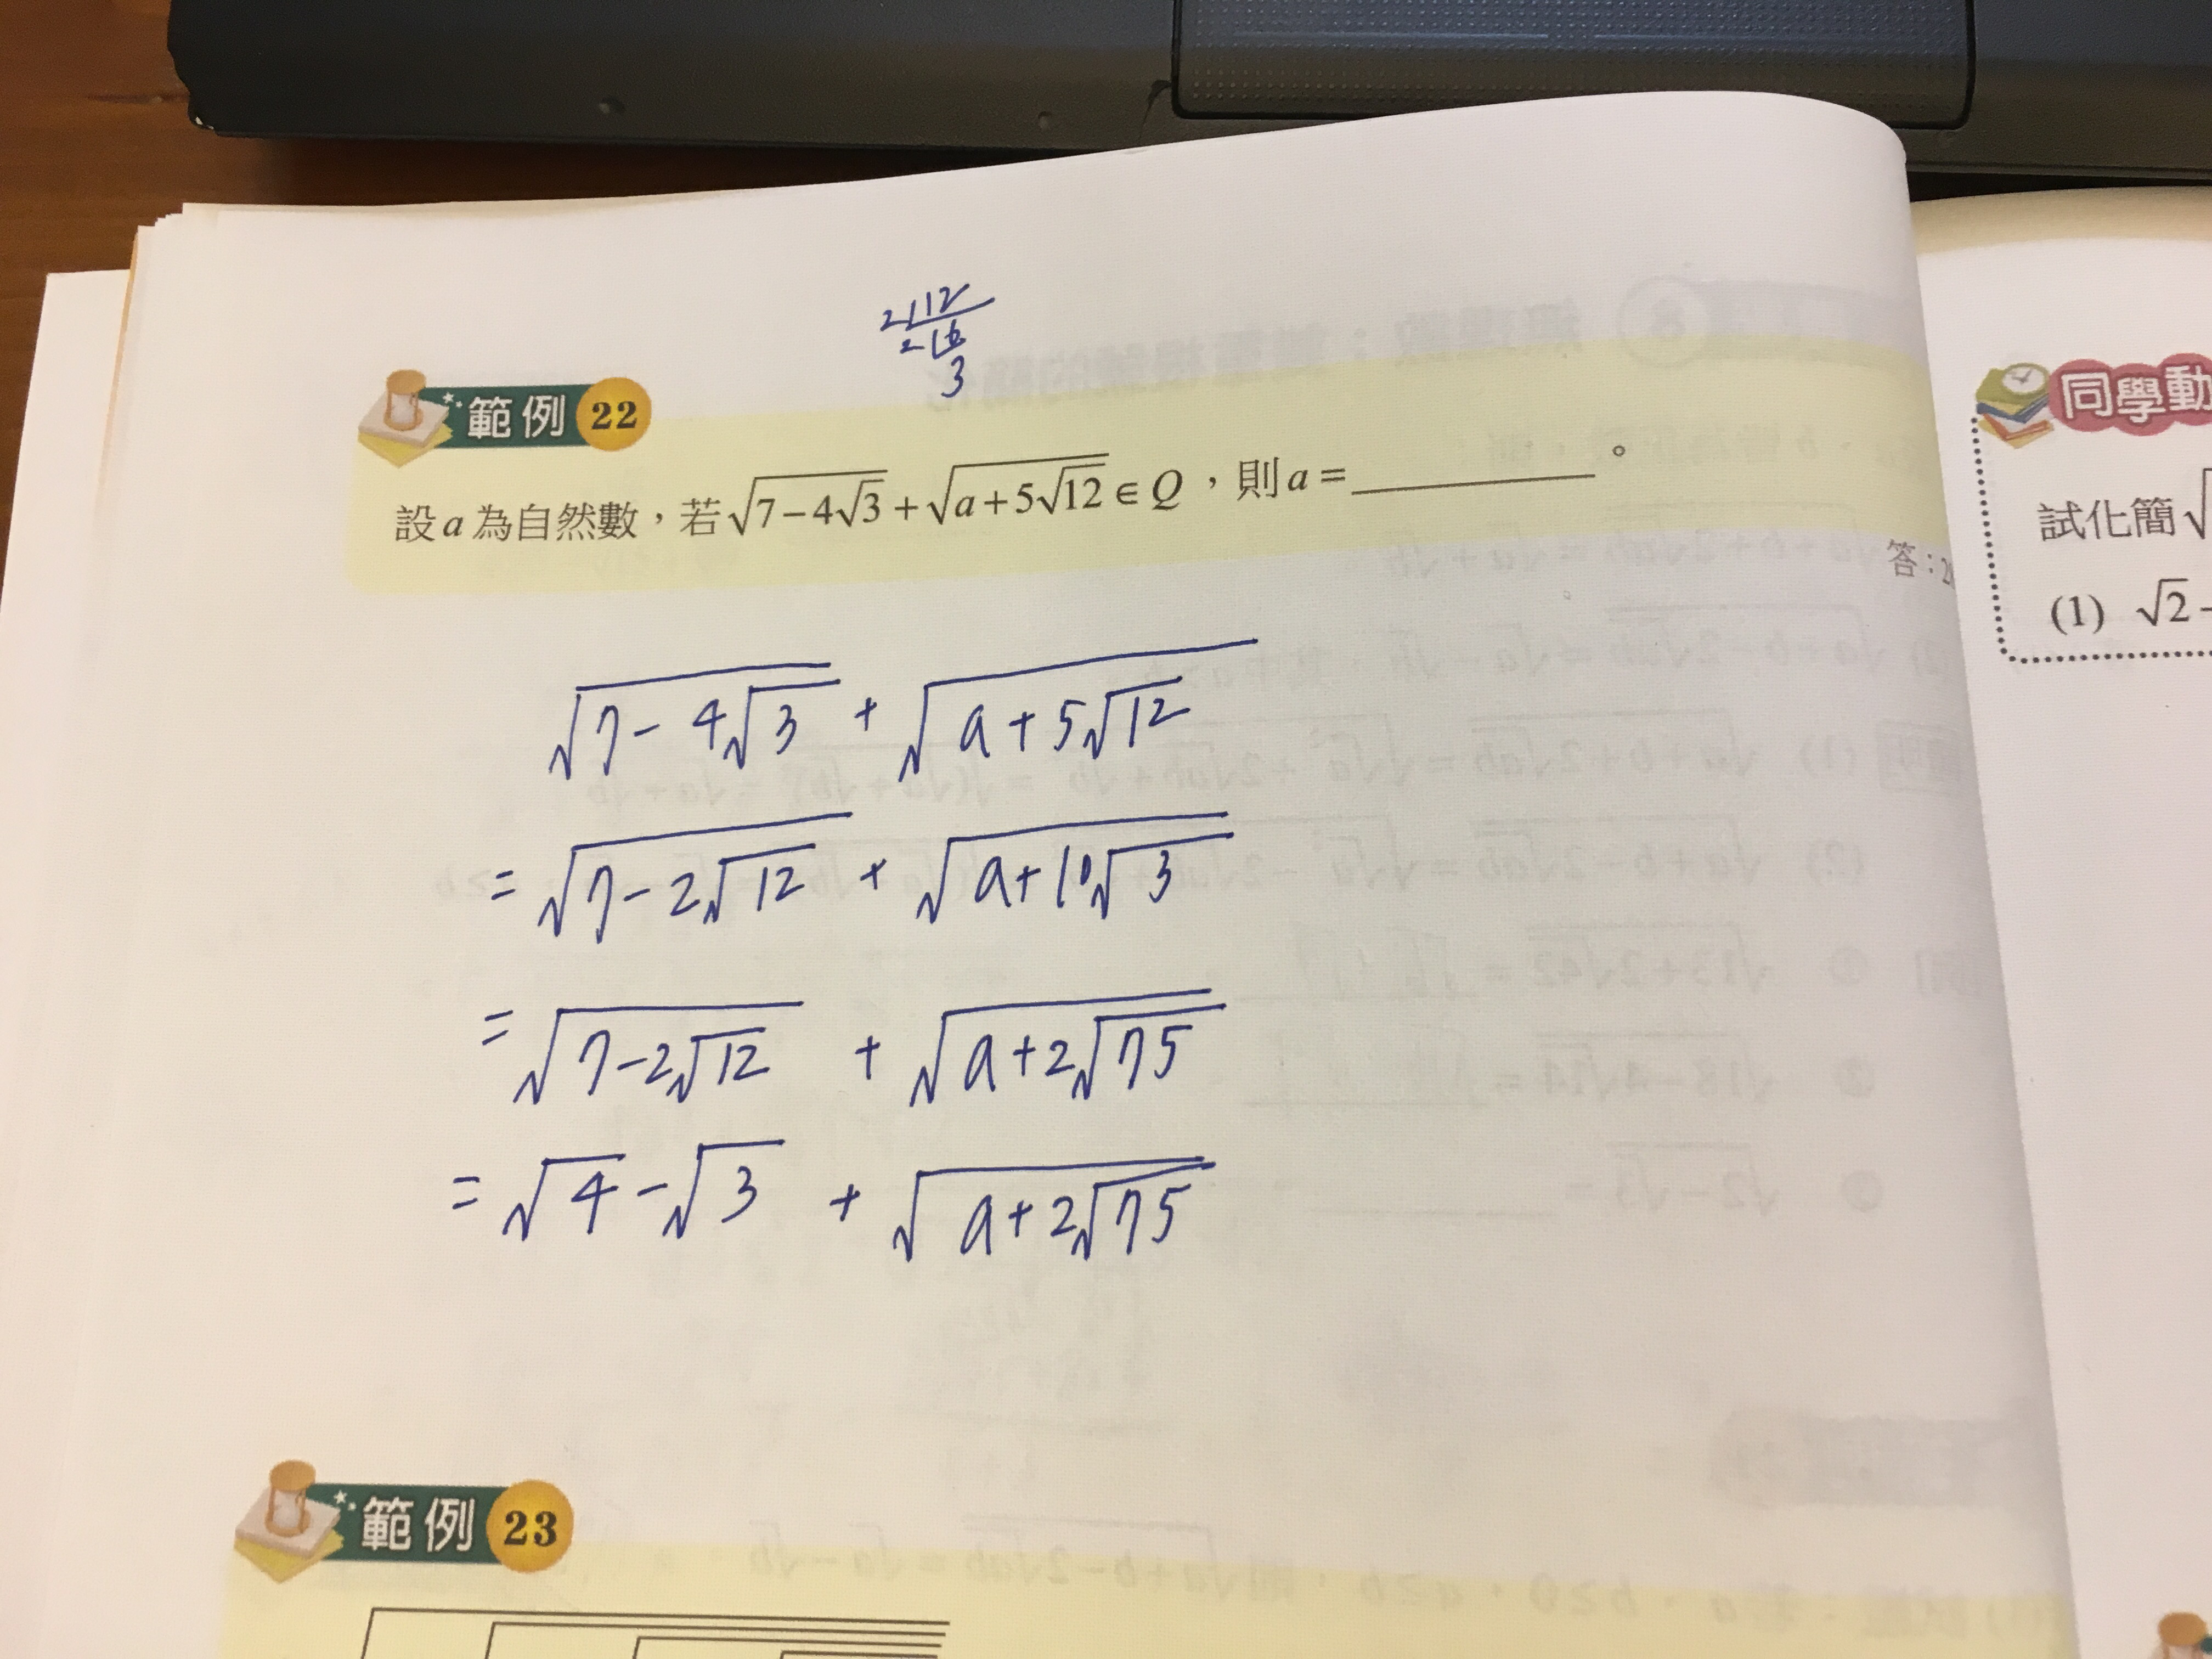 2|12
2|6
3
範例 22
設 a 為自然數，若 √(7−4√3) + √(a+5√12) ∈ Q ，則 a = ________ 。
答：2
√(7 − 4√3) + √(a + 5√12)
= √(7 − 2√12) + √(a + 10√3)
= √(7 − 2√12) + √(a + 2√75)
= √4 − √3 + √(a + 2√75)
範例 23
同學動
試化簡 √
(1) √2 −